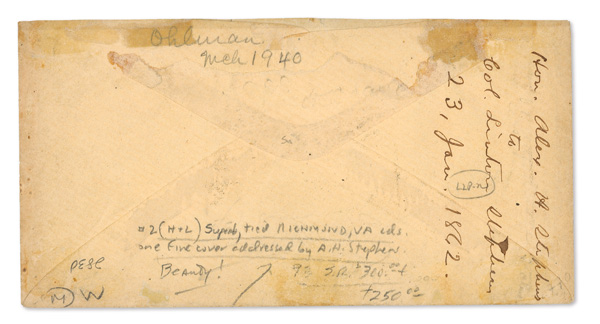 Ohlman
Mch 1940
Hon. Alex. H. Stephens
to
Col. Linton Stephens
23, Jan. 1862.
#2 (H+L) Superb, tied RICHMOND, VA cds.
one fine cover addressed by A.H. Stephens.
Beauty!
+250.00
M W